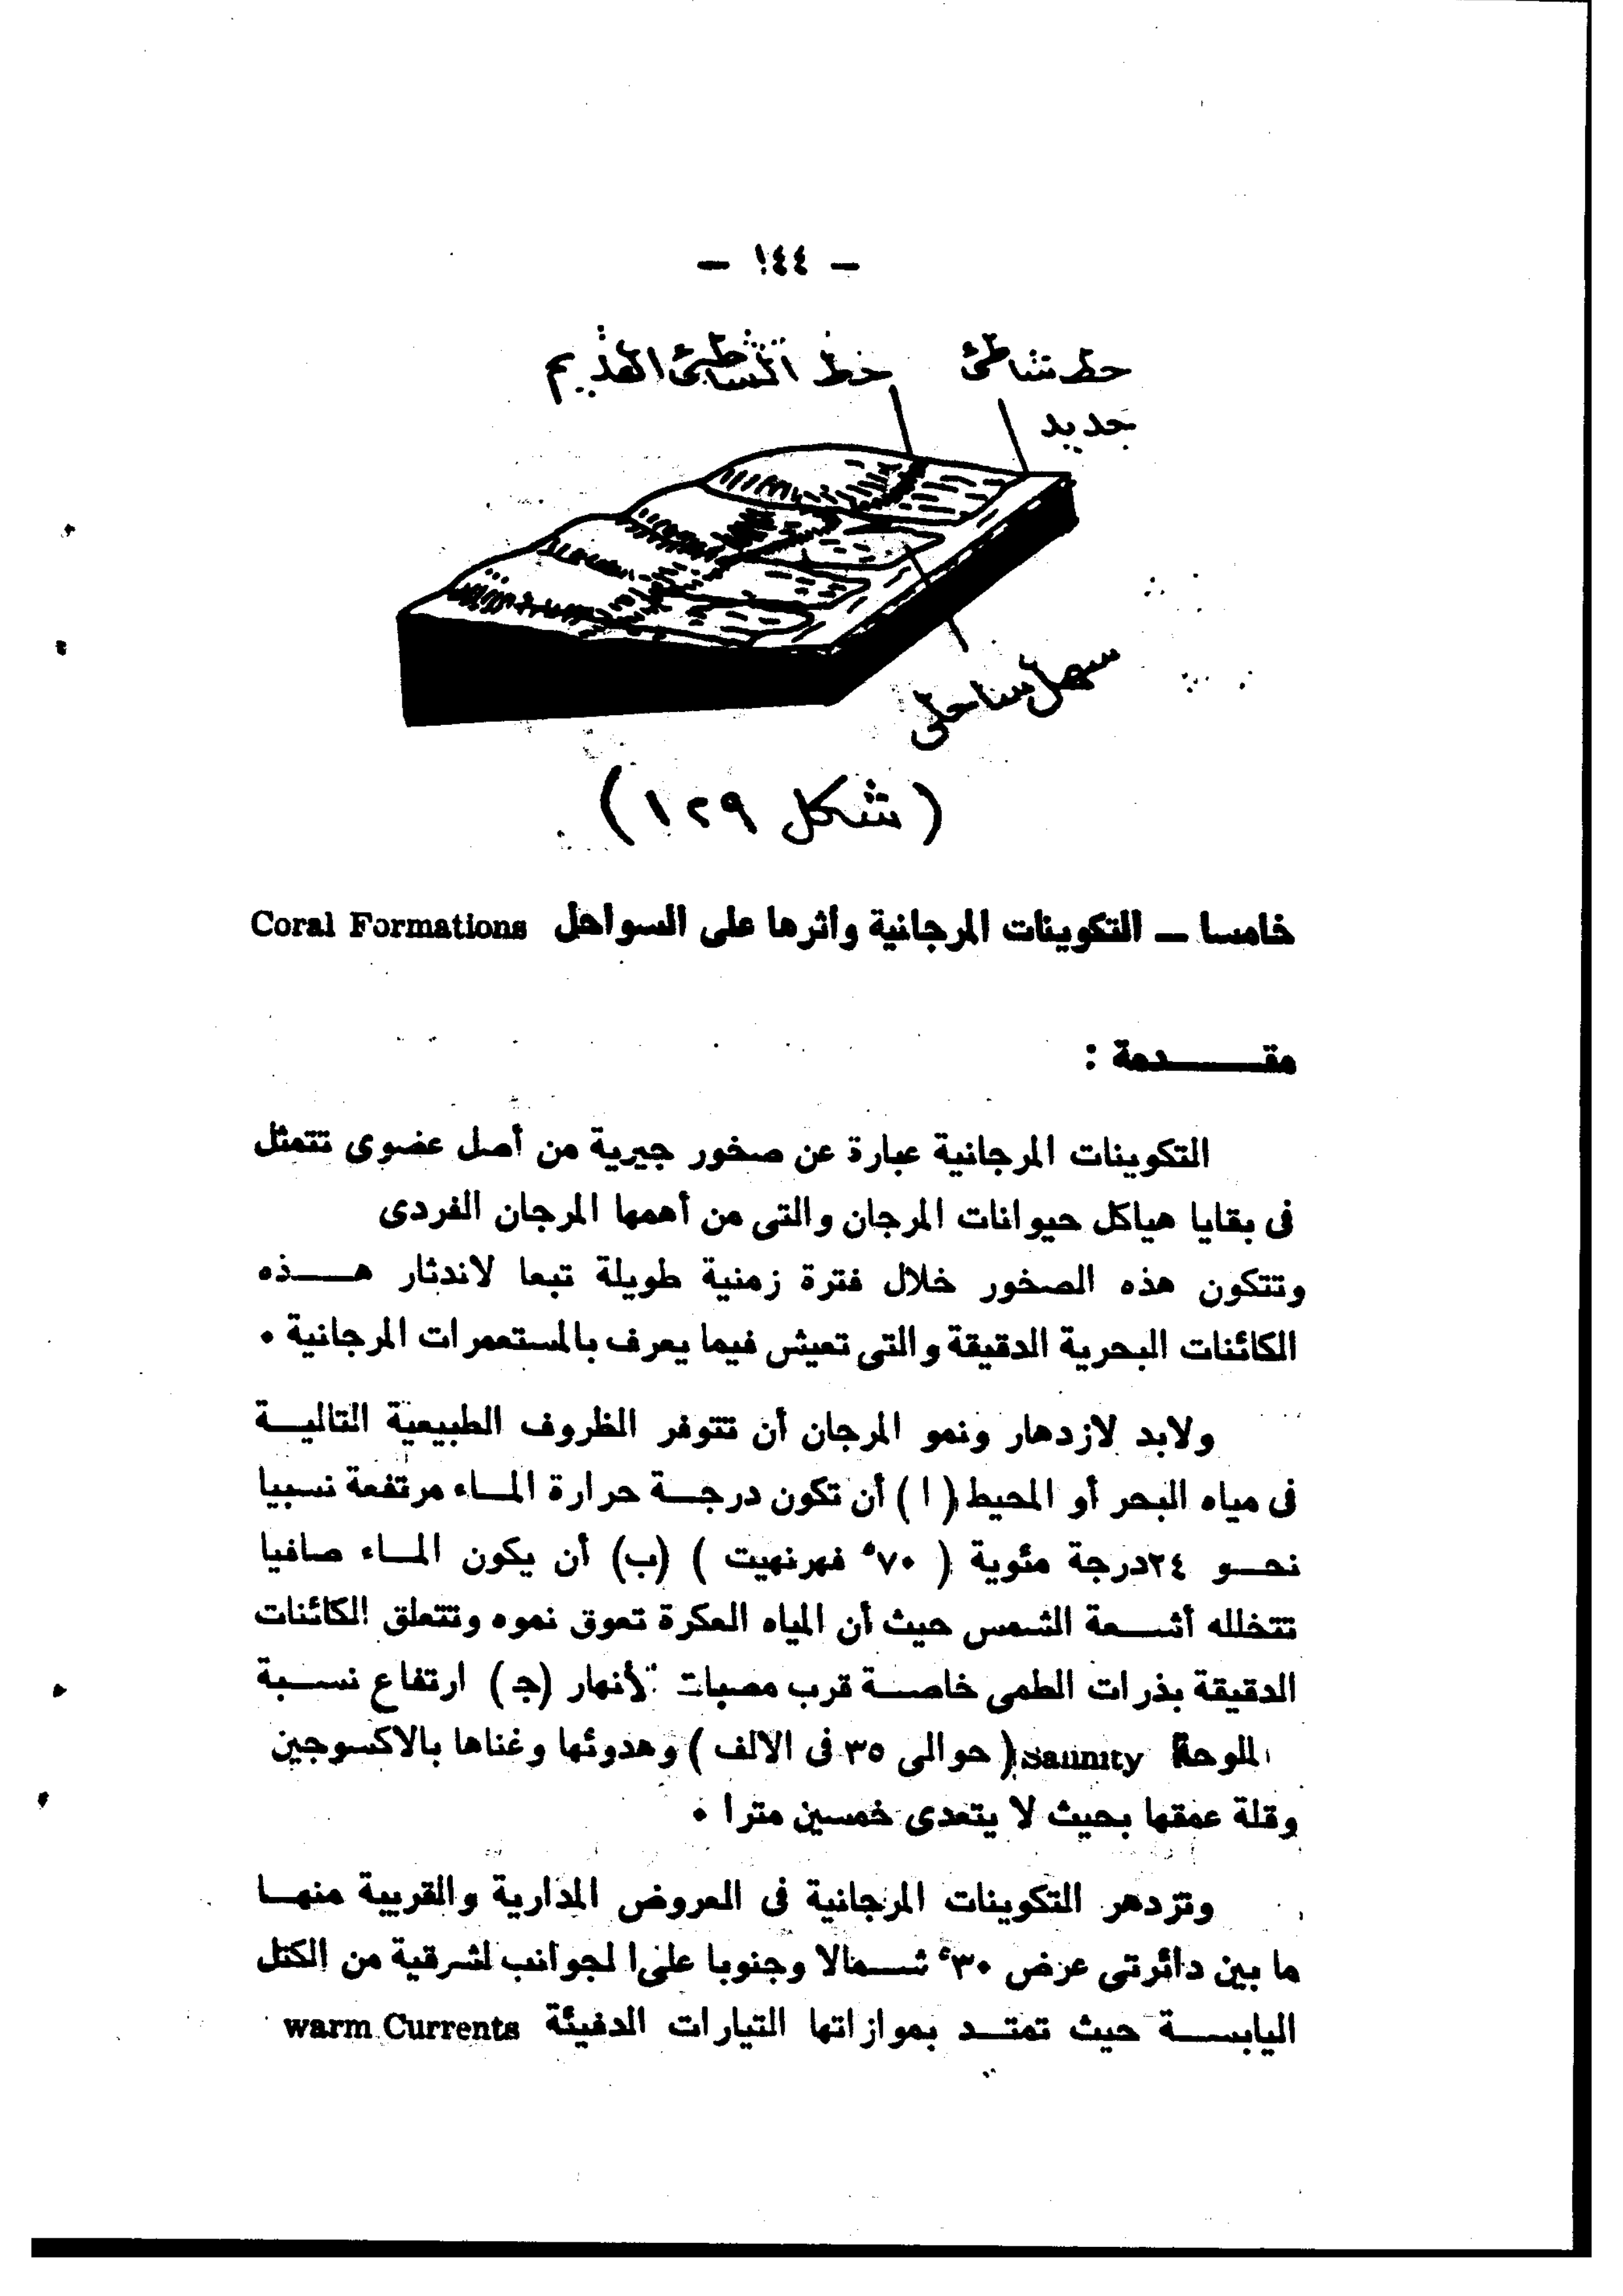 — ١٤٤ —
خط شاطئ
جديد
خط الشاطئ القديم
سهل ساحلى
( شكل ١٢٩ )
خامسا — التكوينات المرجانية وأثرها على السواحل Coral Formations
مقـــــدمة :
التكوينات المرجانية عبارة عن صخور جيرية من أصل عضوى تتمثل
فى بقايا هياكل حيوانات المرجان والتى من أهمها المرجان الفردى
وتتكون هذه الصخور خلال فترة زمنية طويلة تبعا لاندثار هـــذه
الكائنات البحرية الدقيقة والتى تعيش فيما يعرف بالمستعمرات المرجانية •
ولابد لازدهار ونمو المرجان أن تتوفر الظروف الطبيعية التاليــة
فى مياه البحر أو المحيط ( ا ) أن تكون درجــة حرارة المــاء مرتفعة نسبيا
نحــو ٢٤درجة مئوية ( ٧٠° فهرنهيت ) (ب) أن يكون المــاء صافيا
تتخلله أشــعة الشمس حيث أن المياه العكرة تعوق نموه وتتعلق الكائنات
الدقيقة بذرات الطمى خاصــة قرب مصبات الأنهار (ج) ارتفاع نســبة
الملوحة Salinity ( حوالى ٣٥ فى الالف ) وهدوئها وغناها بالاكسوجين
وقلة عمقها بحيث لا يتعدى خمسين مترا •
وتزدهر التكوينات المرجانية فى العروض المدارية والقريبة منهــا
ما بين دائرتى عرض ٣٠° شــمالا وجنوبا على ا لجوانب لشرقية من الكتل
اليابســة حيث تمتــد بموازاتها التيارات الدفيئة warm Currents